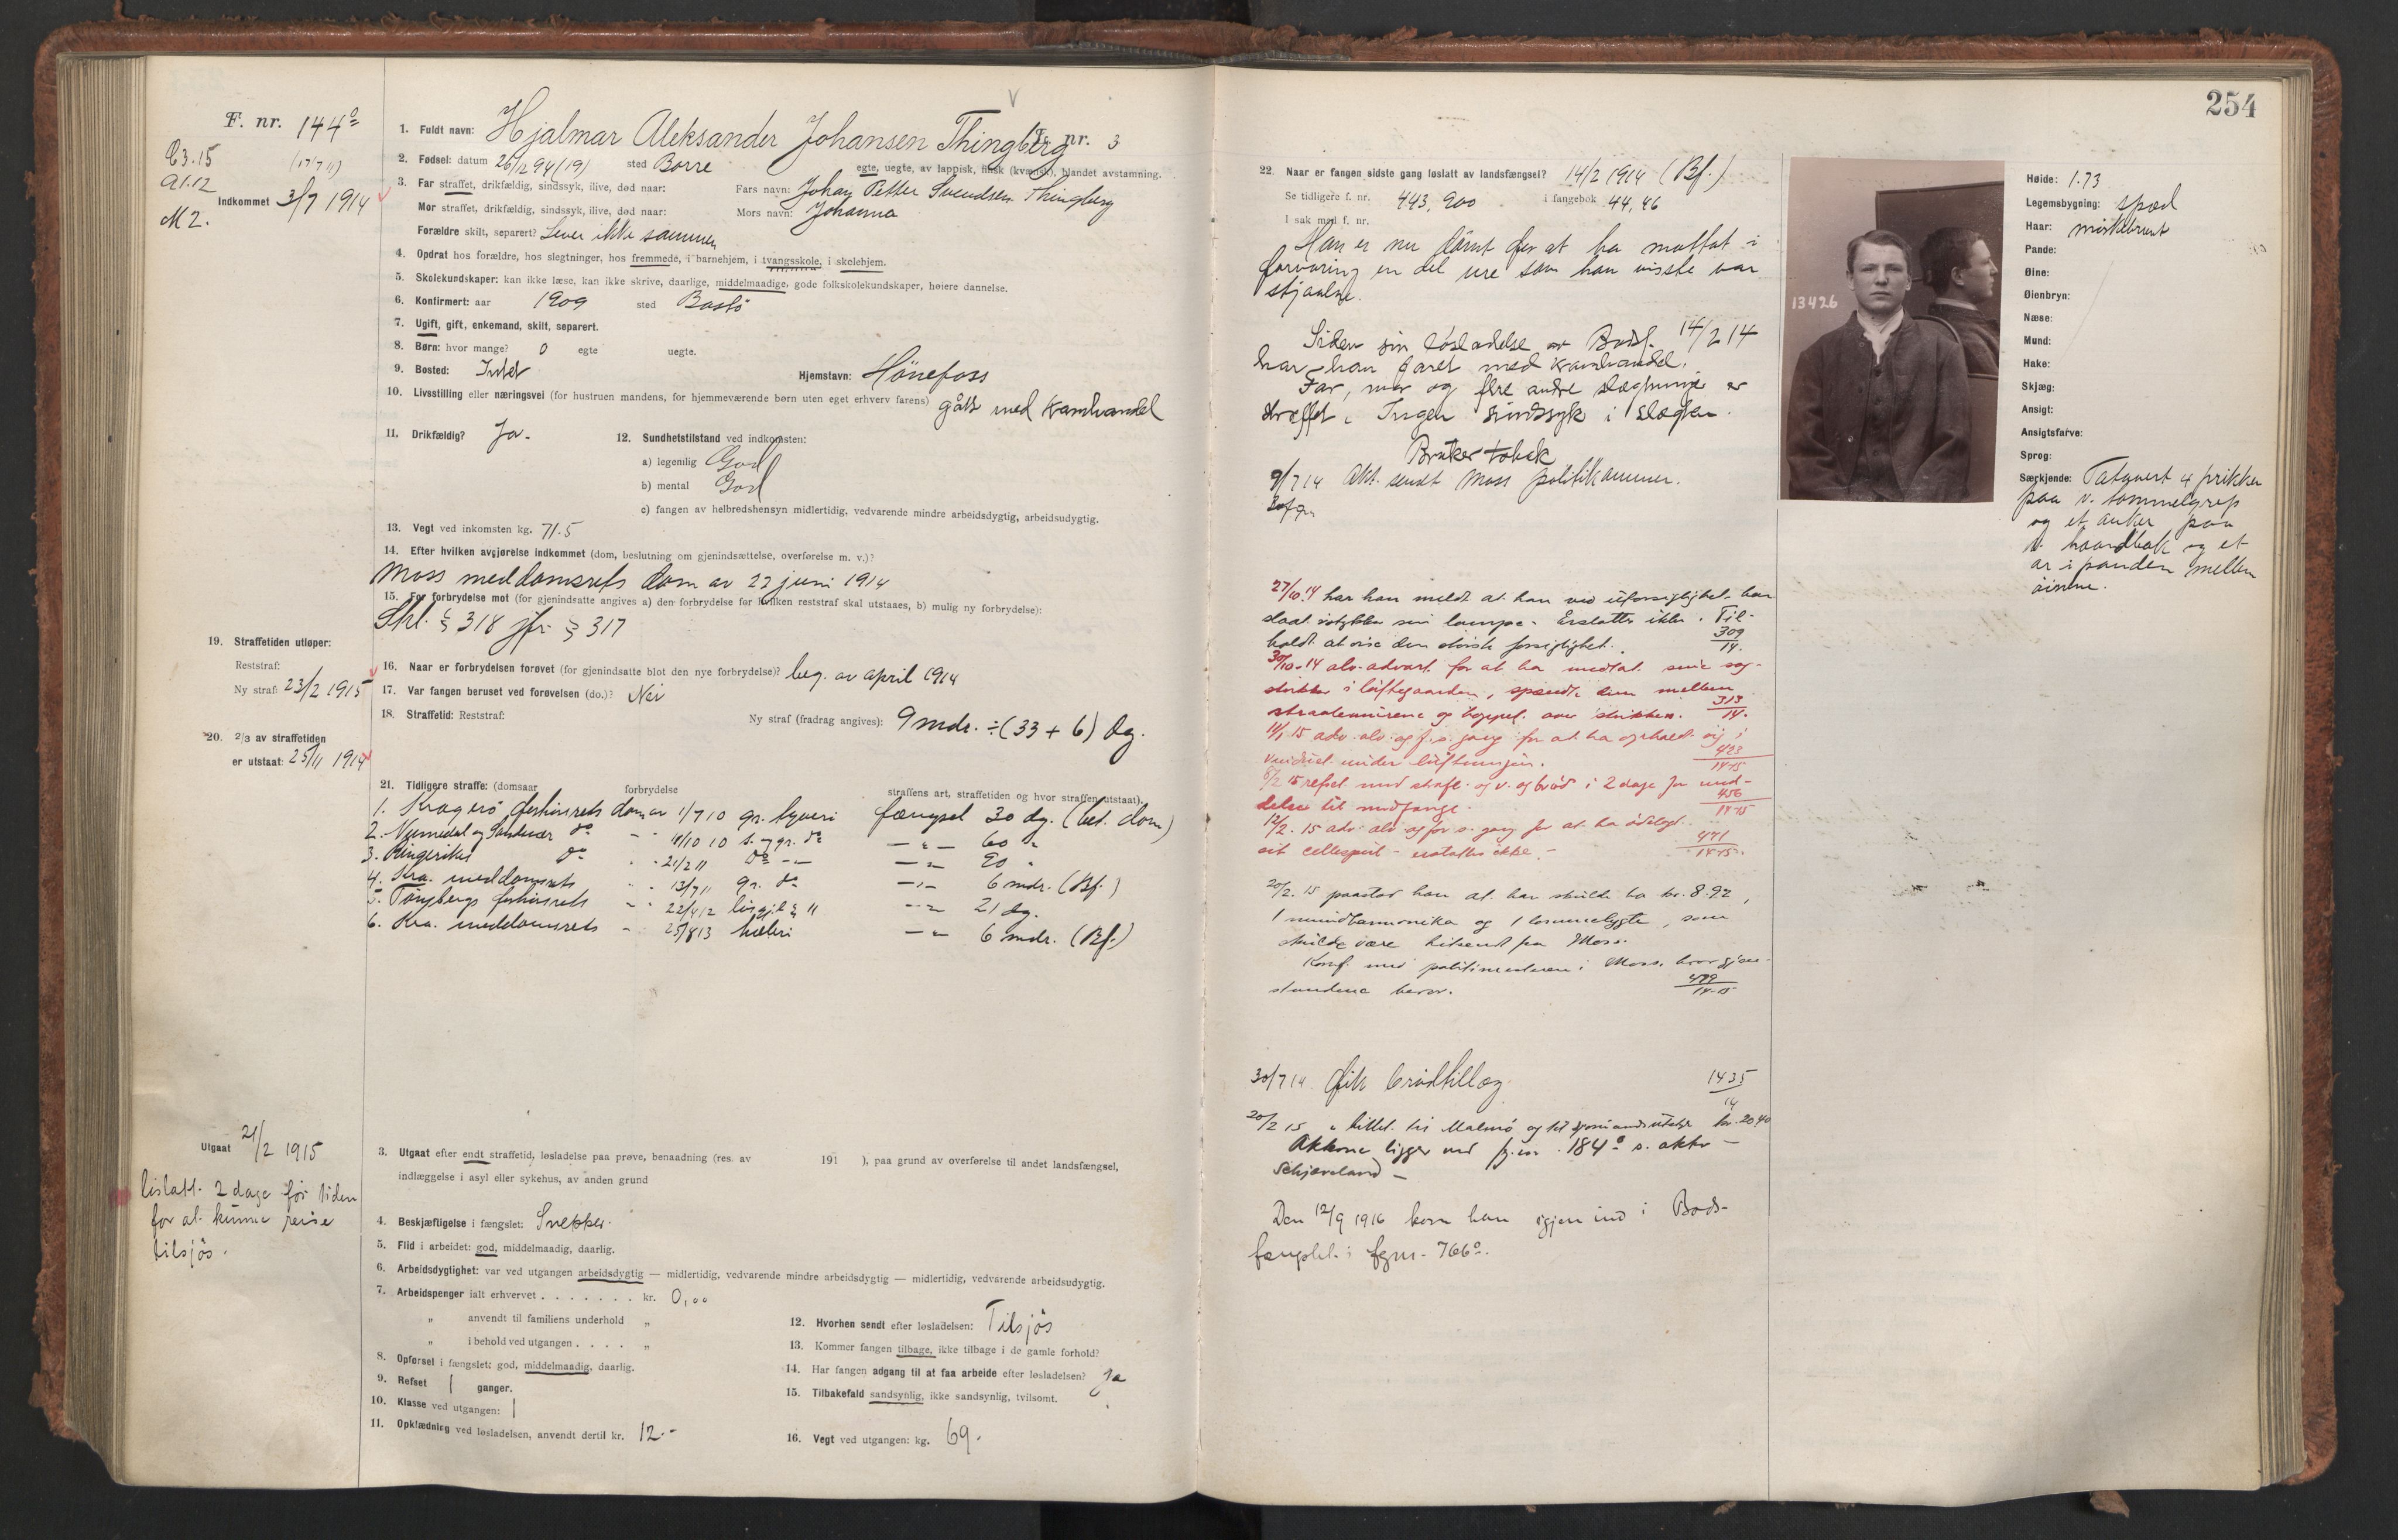 254
F. nr. 144º
C3.15 (17/7 11)
A1.12
Indkommet 3/7 1914
M2.
1. Fuldt navn: Hjalmar Aleksander Johansen Thingberg Fr. nr. 3
2. Fødsel: datum 26/12 94 (19) sted Borre egte, uegte, av lappisk, finsk (kvænsk), blandet avstamning.
3. Far straffet, drikfældig, sindssyk, ilive, død naar: Fars navn: Johan Petter Svendsen Thingberg
Mor straffet, drikfældig, sindssyk, ilive, død naar: Mors navn: Johanna
Forældre skilt, separert? Lever ikke sammen
4. Opdrat hos forældre, hos slegtninger, hos fremmede, i barnehjem, i tvangsskole, i skolehjem.
5. Skolekundskaper: kan ikke læse, kan ikke skrive, daarlige, middelmaadige, gode folkskolekundskaper, høiere dannelse.
6. Konfirmert: aar 1909 sted Bastö
7. Ugift, gift, enkemand, skilt, separert.
8. Børn: hvor mange? 0 egte uegte.
9. Bosted: Intet Hjemstavn: Hönefoss
10. Livsstilling eller næringsvei (for hustruen mandens, for hjemmeværende børn uten eget erhverv farens) gått med kramhandel
11. Drikfældig? Ja. 12. Sundhetstilstand ved indkomsten:
a) legemlig God
b) mental God
c) fangen av helbredshensyn midlertidig, vedvarende mindre arbeidsdygtig, arbeidsudygtig.
13. Vegt ved inkomsten kg. 71.5
14. Efter hvilken avgjørelse indkommet (dom, beslutning om gjenindsættelse, overførelse m. v.)?
Moss meddomsrets dom av 27 juni 1914
15. For forbrydelse mot (for gjenindsatte angives a) den forbrydelse for hvilken reststraf skal utstaaes, b) mulig ny forbrydelse):
Strl. § 318 jfr § 317
19. Straffetiden utløper:
Reststraf:
Ny straf: 23/2 1915
16. Naar er forbrydelsen forøvet (for gjenindsatte blot den nye forbrydelse)? beg. av april 1914
17. Var fangen beruset ved forøvelsen (do.)? Nei
18. Straffetid: Reststraf: Ny straf (fradrag angives): 9 mdr. ÷ (33 + 6) dg.
20. 2/3 av straffetiden
er utstaat: 25/11 1914
21. Tidligere straffe: (domsaar forbrydelse straffens art, straffetiden og hvor straffen utstaat).
1. Kragerö forhörsrets dom av 1/7 10 gr. tyveri fængsel 30 dg. (bet. dom)
2. Numedal og Sandsvær dº - 11/10 10 s. og gr. dº — " — 60 "
3. Ringerikes dº - 21/2 11 dº — " — 90 "
4. Kra. meddomsrets - 13/7 11 gr. dº — " — 6 mdr. (Bf.)
5. Tönsbergs forhörsrets - 22/4 12 lösgjl. § 11 — " — 21 dg.
6. Kra. meddomsrets - 25/8 13 hæleri — " — 6 mdr. (Bf.)
Utgaat 21/2 1915
löslatt. 2 dage för tiden
for at kunne reise
tilsjös.
3. Utgaat efter endt straffetid, løsladelse paa prøve, benaadning (res. av 191 ), paa grund av overførelse til andet landsfængsel,
indlæggelse i asyl eller sykehus, av anden grund
4. Beskjæftigelse i fængslet: Snekker.
5. Flid i arbeidet: god, middelmaadig, daarlig.
6. Arbeidsdyglighet: var ved utgangen arbeidsdygtig — midlertidig, vedvarende mindre arbeidsdygtig — midlertidig, vedvarende arbeidsudygtig.
7. Arbeidspenger ialt erhvervet . . . . . . . kr. 0,00
" anvendt til familiens underhold "
" i behold ved utgangen . . . . "
8. Opførsel i fængslet: god, middelmaadig, daarlig.
9. Refset 1 ganger.
10. Klasse ved utgangen: 1
11. Opklædning ved løsladelsen, anvendt dertil kr. 12.-
12. Hvorhen sendt efter løsladelsen: Tilsjös
13. Kommer fangen tilbage, ikke tilbage i de gamle forhold?
14. Har fangen adgang til at faa arbeide efter løsladelsen? Ja
15. Tilbakefald sandsynlig, ikke sandsynlig, tvilsomt.
16. Vegt ved utgangen: kg. 69.
22. Naar er fangen sidste gang løslatt av landsfængsel? 14/2 1914 (Bf.)
Se tidligere f. nr. 443, 900 i fangebok 44, 46
I sak med f. nr.
Han er nu dömt for at ha mottat i
forvaring en del ure som han visste var
stjaalne.
Siden sin lösladelse av Bodsf. 14/2 14
har han faret med kramhandel.
Far, mor og flere andre slegtninge er
straffet. Ingen sindssyk i slegten.
Bruker tobak
9/7 14 Akt. sendt Moss politikammer.
27/10 14 har han meldt at han ved uforsigtighet har
slaat istykker sin lampe. Erstattes ikke. Til-
holdt at vise den störste forsigtighet. 309/14.
30/10 14 alv. advart for at ha medtat
i luftegaarden, spændt dem mellem
straalemurene og over 313/14.
14/1 15 adv. alv. og f. s. gang for at ha opholdt sig i
vinduet under luftningen. 423/14-15
8/2 15 refset med straf og v. og bröd i 2 dage for med-
delse til medfange. 456/14-15
12/2. 15 adv. alv. og for s. gang for at ha ödelagt
sit cellespeil - erstattes ikke. - 471/14-15.
20/2. 15 paastod han at han skulde ha kr. 8.92,
1 mundharmonika og 1 lommelygte, som
skulde være hitsendt fra Moss.
Konf. med politimesteren i Moss, hvor gjen-
standene beror. 489/14-15
30/7 14 fik brödtillæg. 1435/14
20/2 15 " billet til Malmö og til sjömandsutstyr kr. 20.40
Aktene ligger ved fg. nr. 184º s. akter —
Skjæveland —
Den 12/9 1916 kom han igjen ind i Bods-
fængslet i fgnr. 766º.
13426
Høide: 1.73
Legemsbygning: spæd
Haar: mörkebrunt
Pande:
Øine:
Øienbryn:
Næse:
Mund:
Hake:
Skjæg:
Ansigt:
Ansigtsfarve:
Sprog:
Særkjende: Tatovert 4 prikker
paa v. tommelgrep
og et anker paa
v. haandbak og et
ar i panden mellem
öinene.